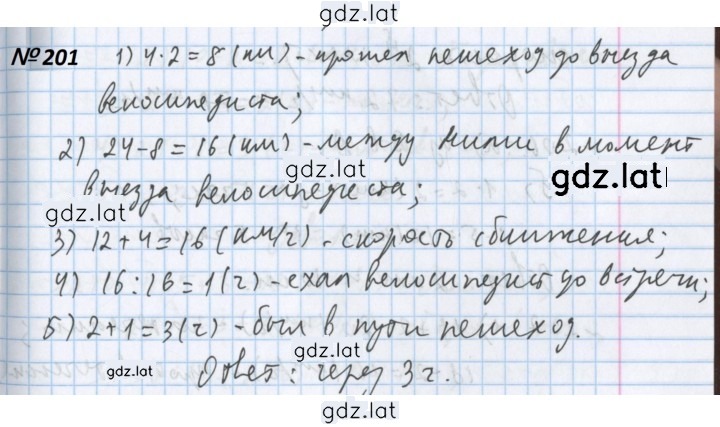 gdz.lat
№201 1) 4·2=8 (км) - прошел пешеход до выезда
велосипедиста;
2) 24-8=16 (км) - между ними в момент
gdz.lat
gdz.lat
выезда велосипедиста;
gdz.lat
3) 12+4=16 (км/ч) - скорость сближения;
4) 16:16=1 (ч) - ехал велосипедист до встречи;
gdz.lat
5) 2+1=3 (ч) - был в пути пешеход.
gdz.lat
gdz.lat
Ответ: через 3 ч.
gdz.lat